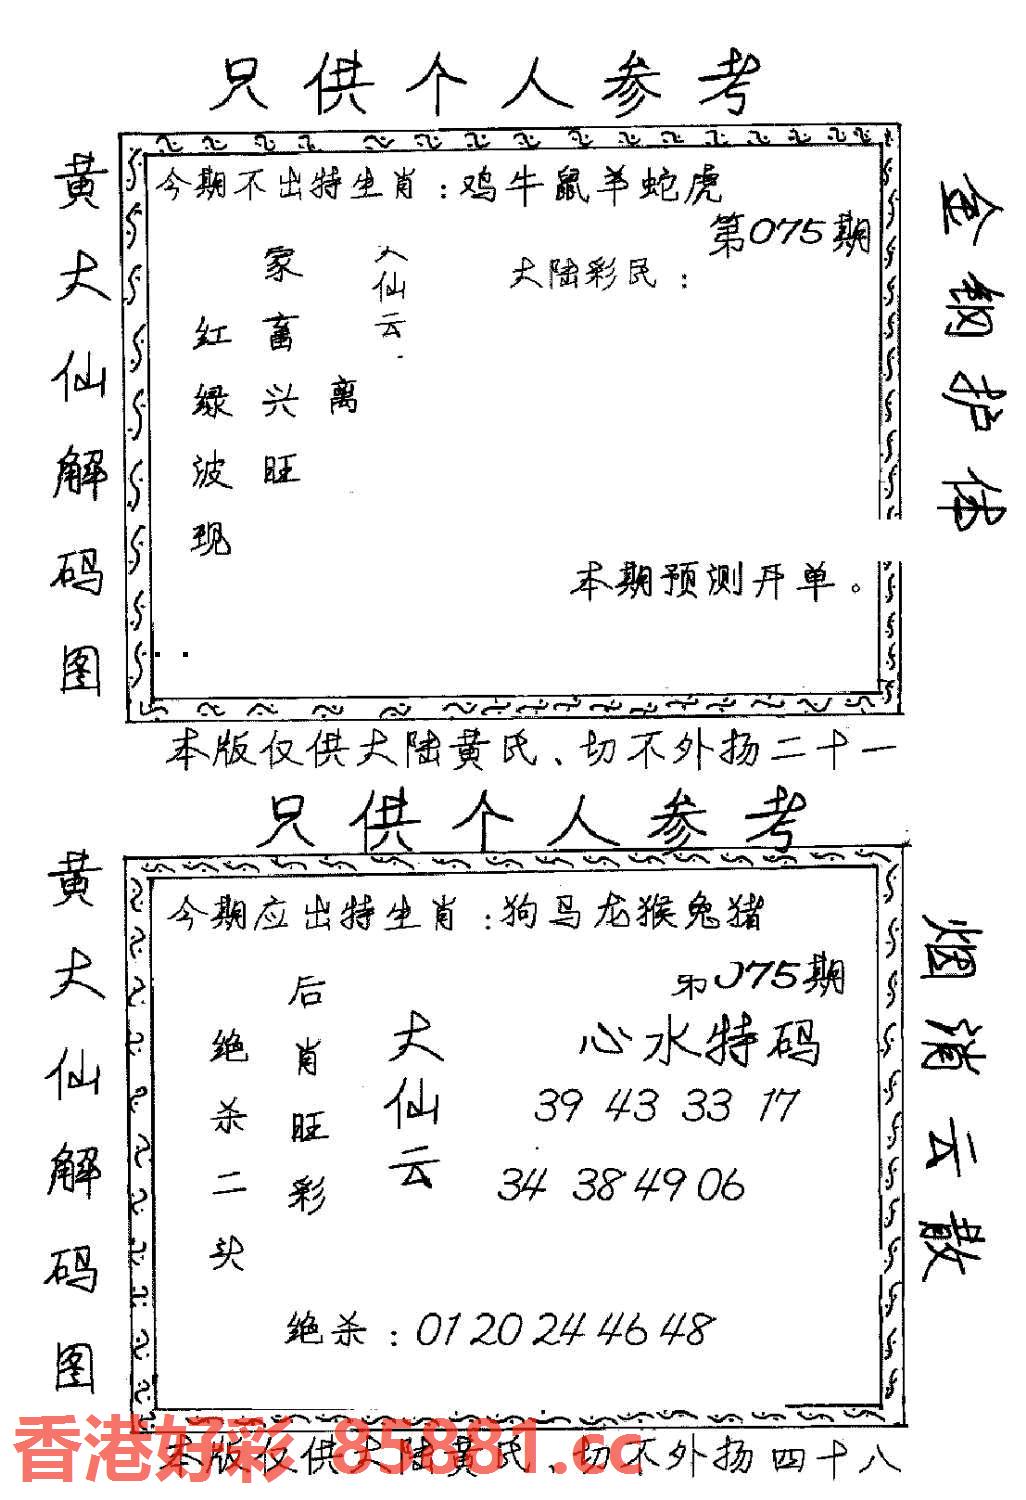 只供个人参考
黄大仙解码图
今期不出特生肖:鸡牛鼠羊蛇虎
第075期
大陆彩民:
大仙云
离
家畜兴旺
红绿波现
本期预测开单。
金钢护体
本版仅供大陆黄氏、切不外扬二十一
只供个人参考
黄大仙解码图
今期应出特生肖:狗马龙猴兔猪
第075期
心水特码
39 43 33 17
34 38 49 06
大仙云
后肖旺彩
绝杀二头
绝杀:01 20 24 46 48
烟消云散
本版仅供大陆黄氏、切不外扬四十八
香港好彩 85881.cc